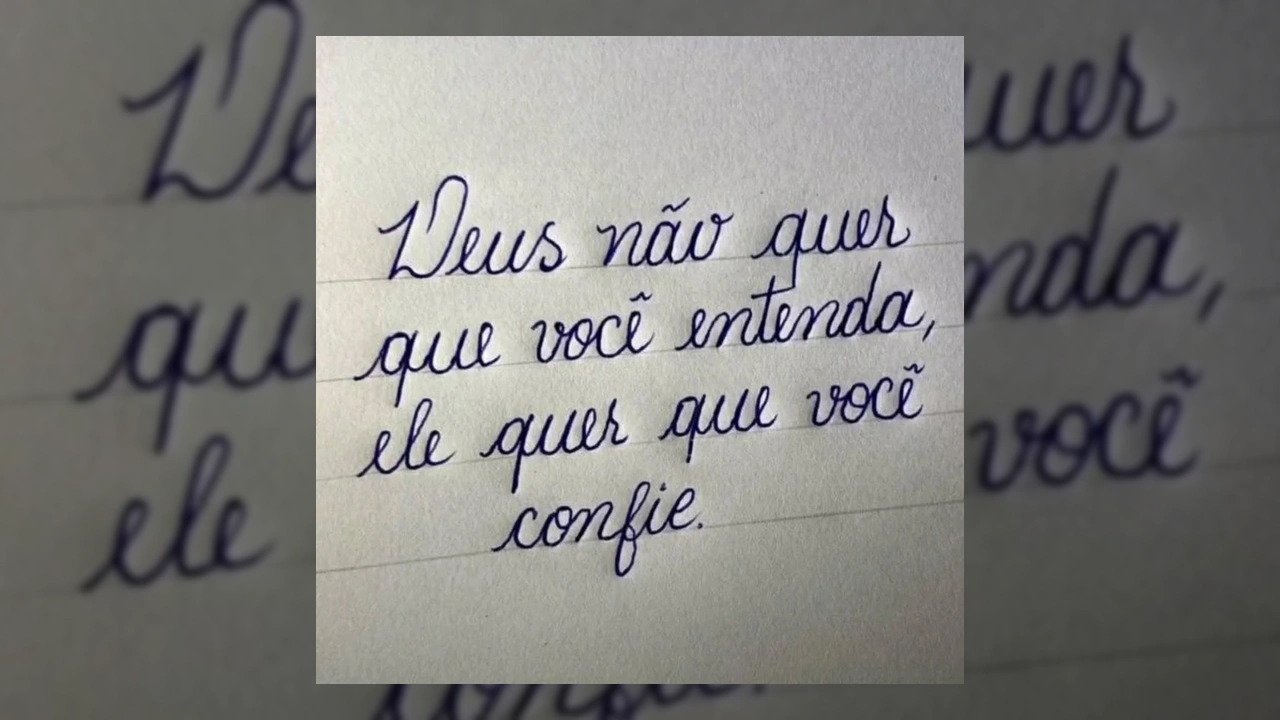 Deus não quer
que você entenda,
ele quer que você
confie.